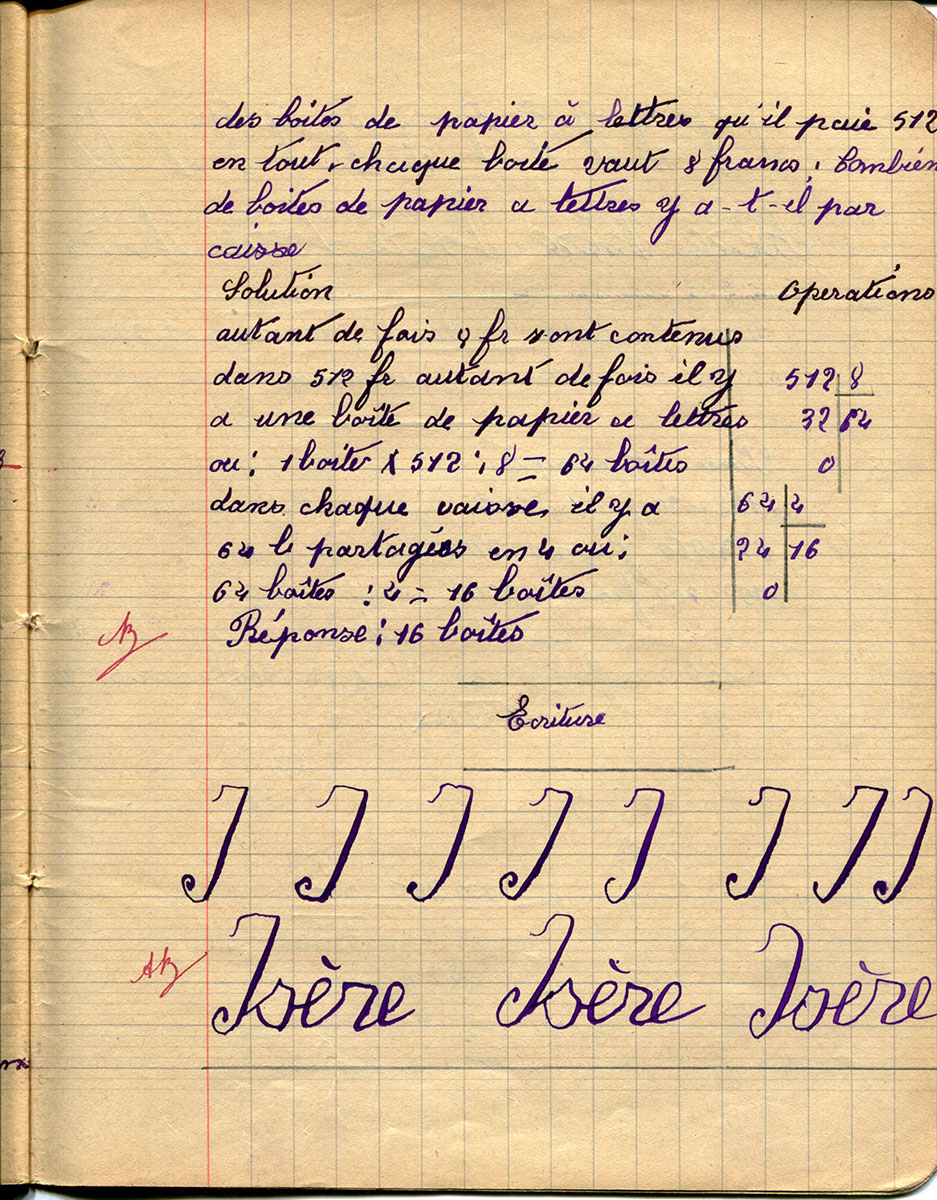 des boites de papier à lettres qu'il paie 512
en tout, chaque boite vaut 8 francs. Combien
de boites de papier a lettres y a-t-il par
caisse
Solution Opérations
autant de fois 8 fr sont contenus
dans 512 fr autant de fois il y 512 8
a une boîte de papier a lettres 32 64
ou : 1 boite X 512 : 8 = 64 boîtes 0
dans chaque il y a 64 4
64 b partagées en 4 ou : 24 16
64 boîtes : 4 = 16 boîtes 0
Réponse : 16 boîtes
B
Ecriture
I I I I I I I I
AB
Isère Isère Isère